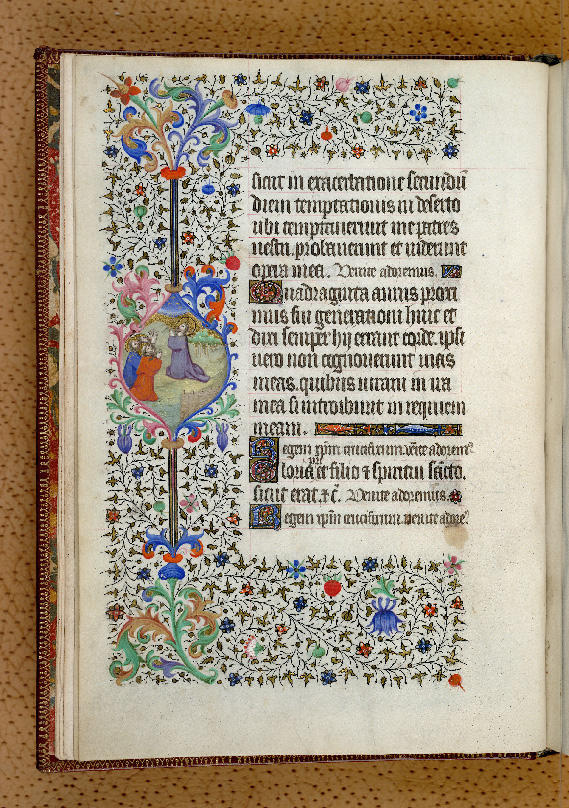 sicut in exacerbatione secundū
diem temptationis in deserto
ubi temptaverunt me patres
vestri. probaverunt et viderunt
opera mea. Venite adoremus.
Quadraginta annis proxi
mus fui generationi huic et
dixi semper hij errant corde. ipsi
vero non cognoverunt vias
meas. quibus iuravi in ira
mea si introibunt in requiem
meam.
Regem xp̄m crucifixum. venite adorem9
Gloria pr̄i et filio ⁊ spiritui sc̄to.
sicut erat. ⁊ c̄. Venite adoremus.
Regem xp̄m crucifixum. venite adore9.